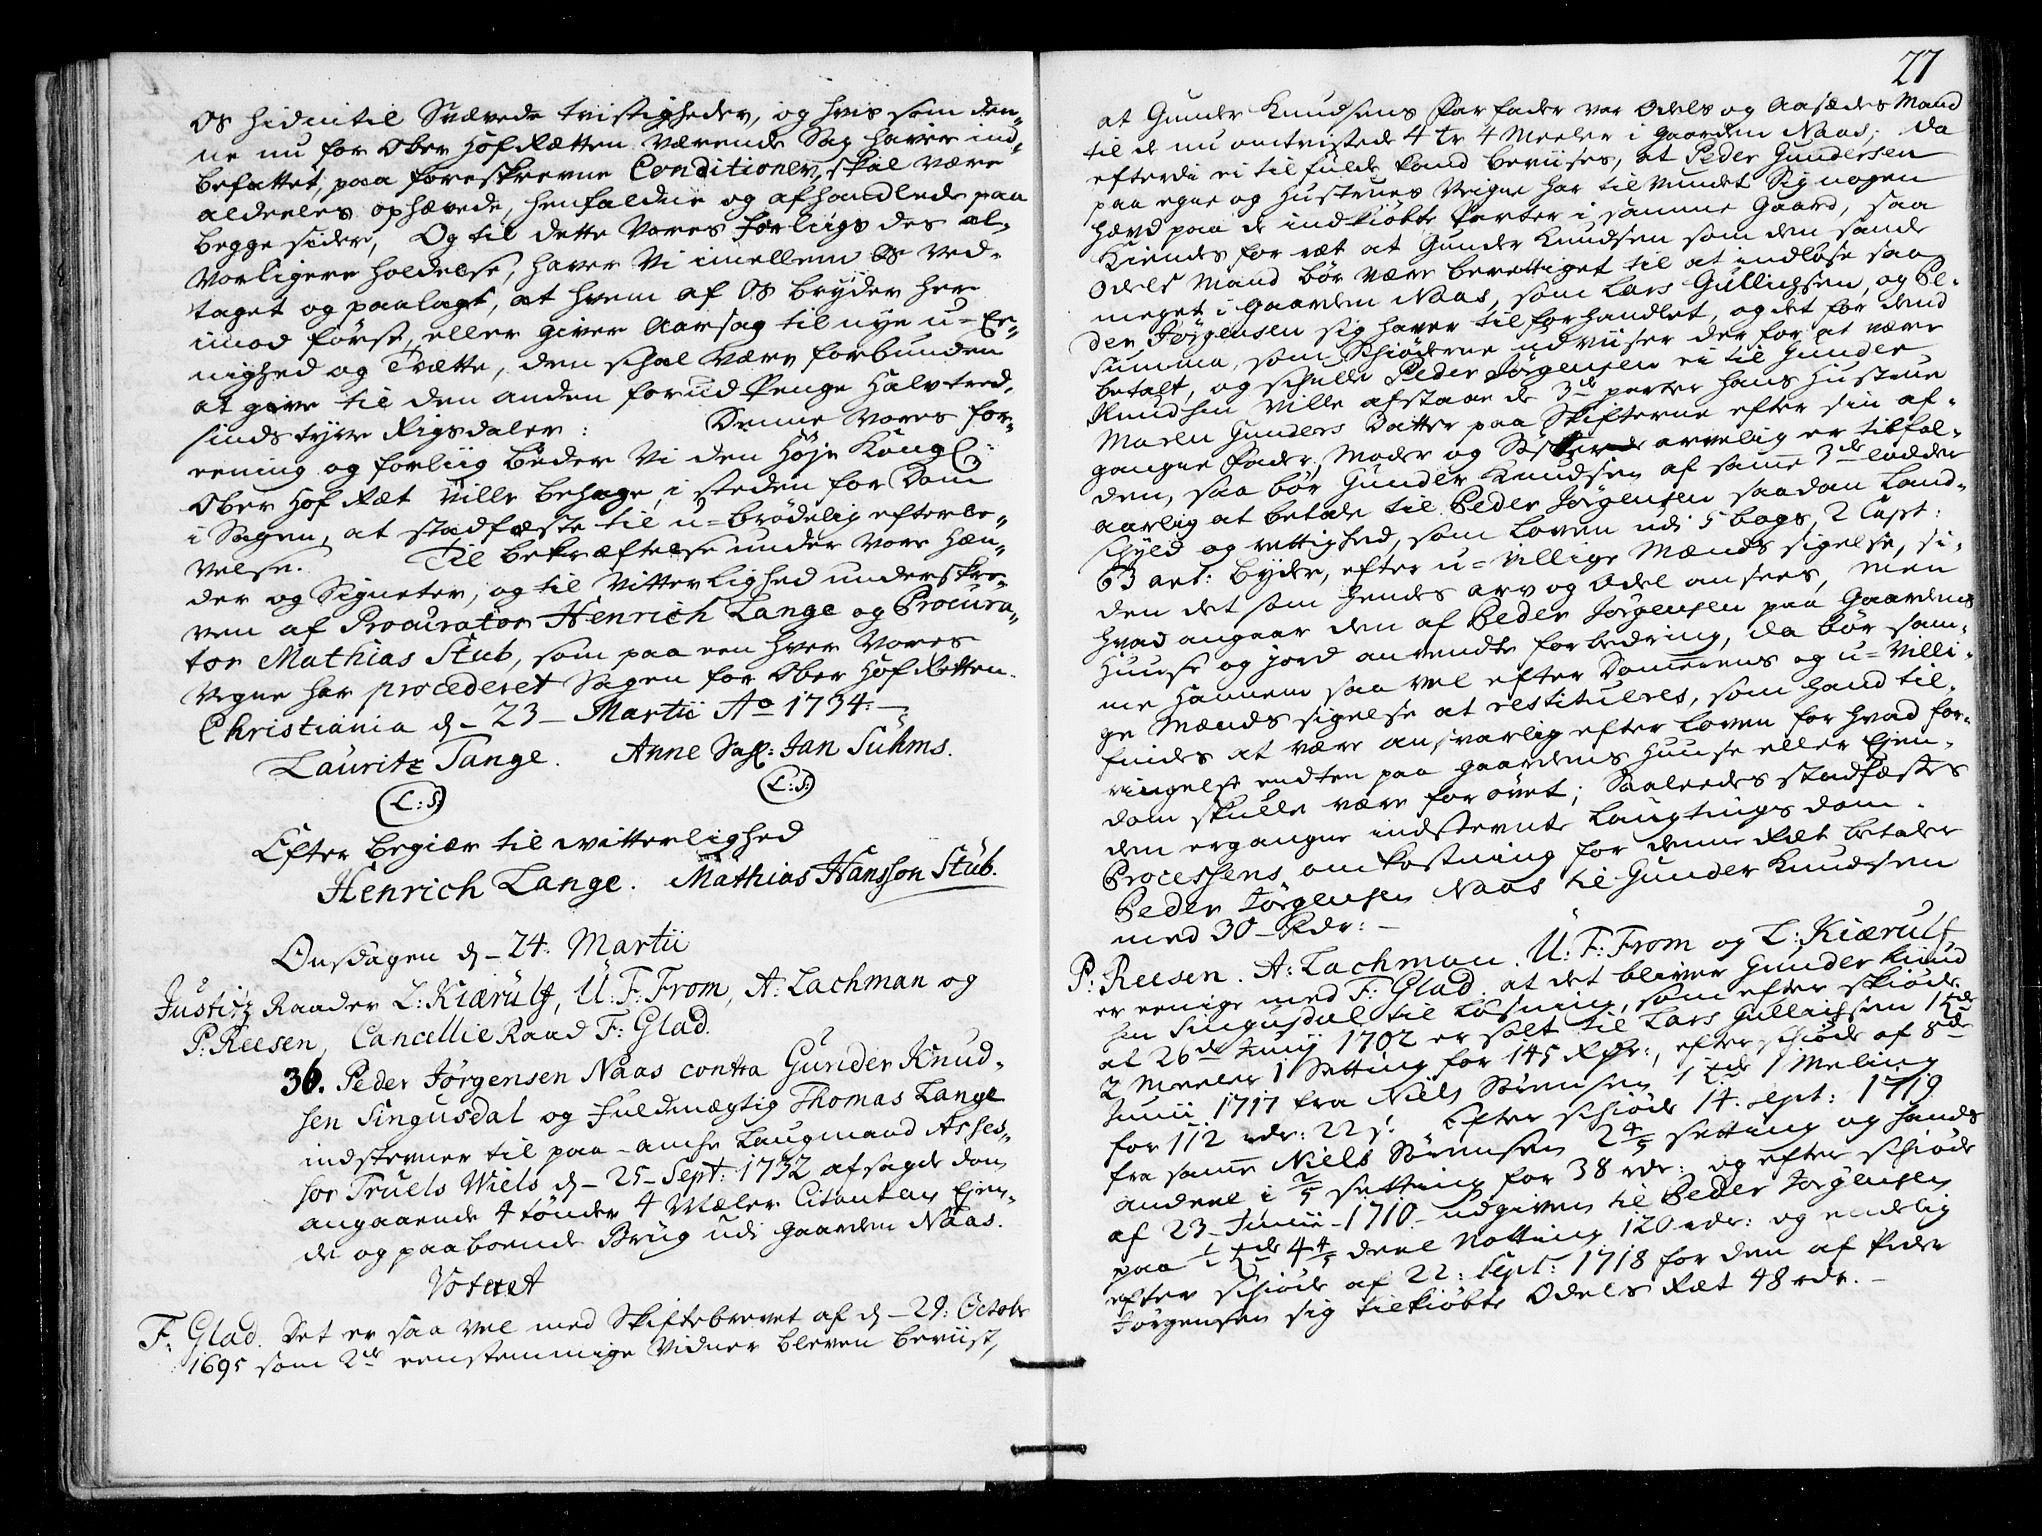 os hidentil Svævede tvistigheder, og hvis som den-
ne nu for Ober Hof Rætten værende Sag haver ind-
befattet, paa foreskrevne Conditioner, skal være
aldeeles ophævede, henfaldne og afhandlede paa
begge sider, Og til dette Vores Forliigs des al-
vorligere holdelse, haver Vi imellem Os ved-
taget og paalagt, at hvem af Os bryder her
imod først, eller giver Aarsag til nye u-Ee-
nighed og Trætte, den schal være forbunden
at give til den anden forud Penge Halvtred-
sindstyve Rigsdaler: Denne Vores for-
eening og forliig beder Vi den Høje Kongl:
Ober Hof Ræt ville behage, i steden for Dom
i Sagen, at stadfæste til u-brødelig efterle-
velse. Til bekræftelse under Vore Hæn-
der og Signeter, og til Vitterlighed underskre-
ven af Procurator Henrich Lange og Procura-
tor Mathias Stub, som paa een hver Vores
Vegne har procederet Sagen for Ober Hof Retten.
Christiania d- 23- Martii Ao 1734.-
Lauritz Tange. Anne Sal: Jan Suhms.
(L:S:) (L:S:)
Efter begiær til witterlighed
Henrich Lange. Mathias Hansson Stub.
Onsdagen d- 24. Martii
Justitz Raader L: Kiærulf, U: F: From, A: Lachman og
P: Reesen, Cancellie Raad F: Glad.
36. Peder Jørgensen Naas contra Gunder Knud-
sen Singusdal og Fuldmægtig Thomas Lange
indstevner til paa-anche Laugmand Asses-
sor Truels Wiels d- 25- Sept: 1732 afsagde dom
angaaende 4 tønder 4 Mæler Citanten Ejen-
de og paaboende Brug udi gaarden Naas.
Voteret
F: Glad. Det er saa vel med Skiftebrevet af d- 29: Octobr
1695 som 2de eenstemmige Vidner bleven beviist,
27
at Gunder Knudsens Farfader var Odels og Aasædes Mand
til de nu omtvistede 4 tr 4 Meeler i gaarden Naas; da
efterdi ei til fulde kand beviises, at Peder Gundersen
paa egne og Hustrues Veigne har tilvundet Sig nogen
hævd paa de indkiøbte Parter i samme Gaard, saa
kiendes for ræt at Gunder Knudsen som den sande
Odels Mand bør være berettiget til at indløse saa
meget i gaarden Naas, som Lars Gullichsen, og Pe-
der Jørgensen sig haver tilforhandlet, og det for dend
summa, som Skiøderne udviiser derfor at være
betalt, og schulle Peder Jørgensen ei til Gunder
Knudsen ville afstaae de 3de parter hans Hustrue
Maren Gunders Datter paa Skifterne efter sin af-
gangne Fader, Moder og Søster arvelig er tilfal-
den, saa bør Gunder Knudsen af samme 3de lodder
aarlig at betale til Peder Jørgensen saadan Land-
skyld og rettighed, som Loven udi 5 bogs 2 Capt:
63 art: byder, efter u-villige Mænds sigelse, si-
den det som hendes arv og Odel ansees, men
hvad angaar den af Peder Jørgensen paa Gaardens
Huuse og jord anvendte forbedring, da bør sam-
me Hannem saa vel efter Dommerens og u-Villi-
ge Mænds sigelse at restitueres, som hand til-
findes at være ansvarlig efter Loven for hvad for-
ringelse endten paa gaardens Huuse eller Ejen-
dom skulle være forøvet; Saaleedes stadfæstes
den ergangne indstevnte Laugtings dom.
Processens omkostning for denne Ræt betaler
Peder Jørgensen Naas til Gunder Knudsen
med 30- Rdr:-
P: Reesen. A: Lachman. U: F: From og L: Kiærulf
er eenige med F: Glad. at det bliver Gunder Knud
sen Singusdal til Løsning, som efter skiøde
af 26de Junij 1702 er solt til Lars Gullichsen 1 tde
2 Meeler 1 Setting for 145 Rdr:, efter schiøde af 8de
Junii 1717 fra Niels Sørensen 1 tde 1 Meling
for 112 rdr: 22 s: Efter schiøde 14. sept: 1719
fra samme Niels Sørensen 2 4/5 setting og hands
andeel i 2/5 setting for 38 rdr: og efter schiøde
af 23- Junii- 1710- udgiven til Peder Jørgensen
paa 1/2 tde 4 4/5 deel Notting 120 rdr: og endelig
efter schiøde af 22: Sept: 1718 for den af Peder
Jørgensen sig tilkiøbte Odels Ræt 48 rdr.-